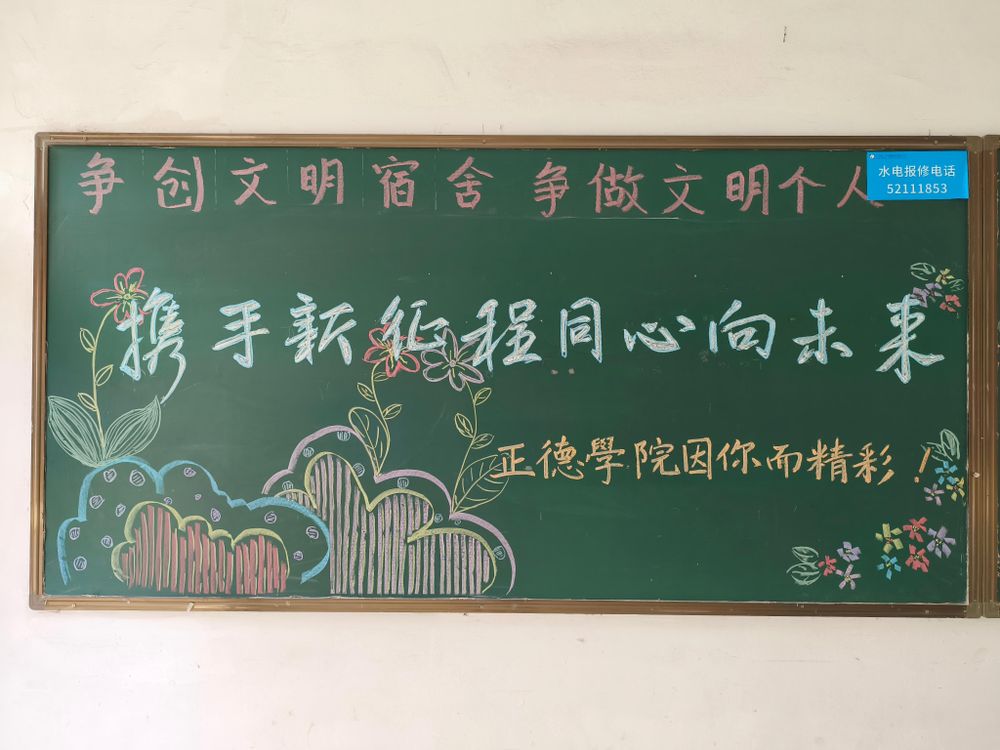 争创文明宿舍 争做文明个人
水电报修电话
52111853
携手新征程同心向未来
正德學院因你而精彩！